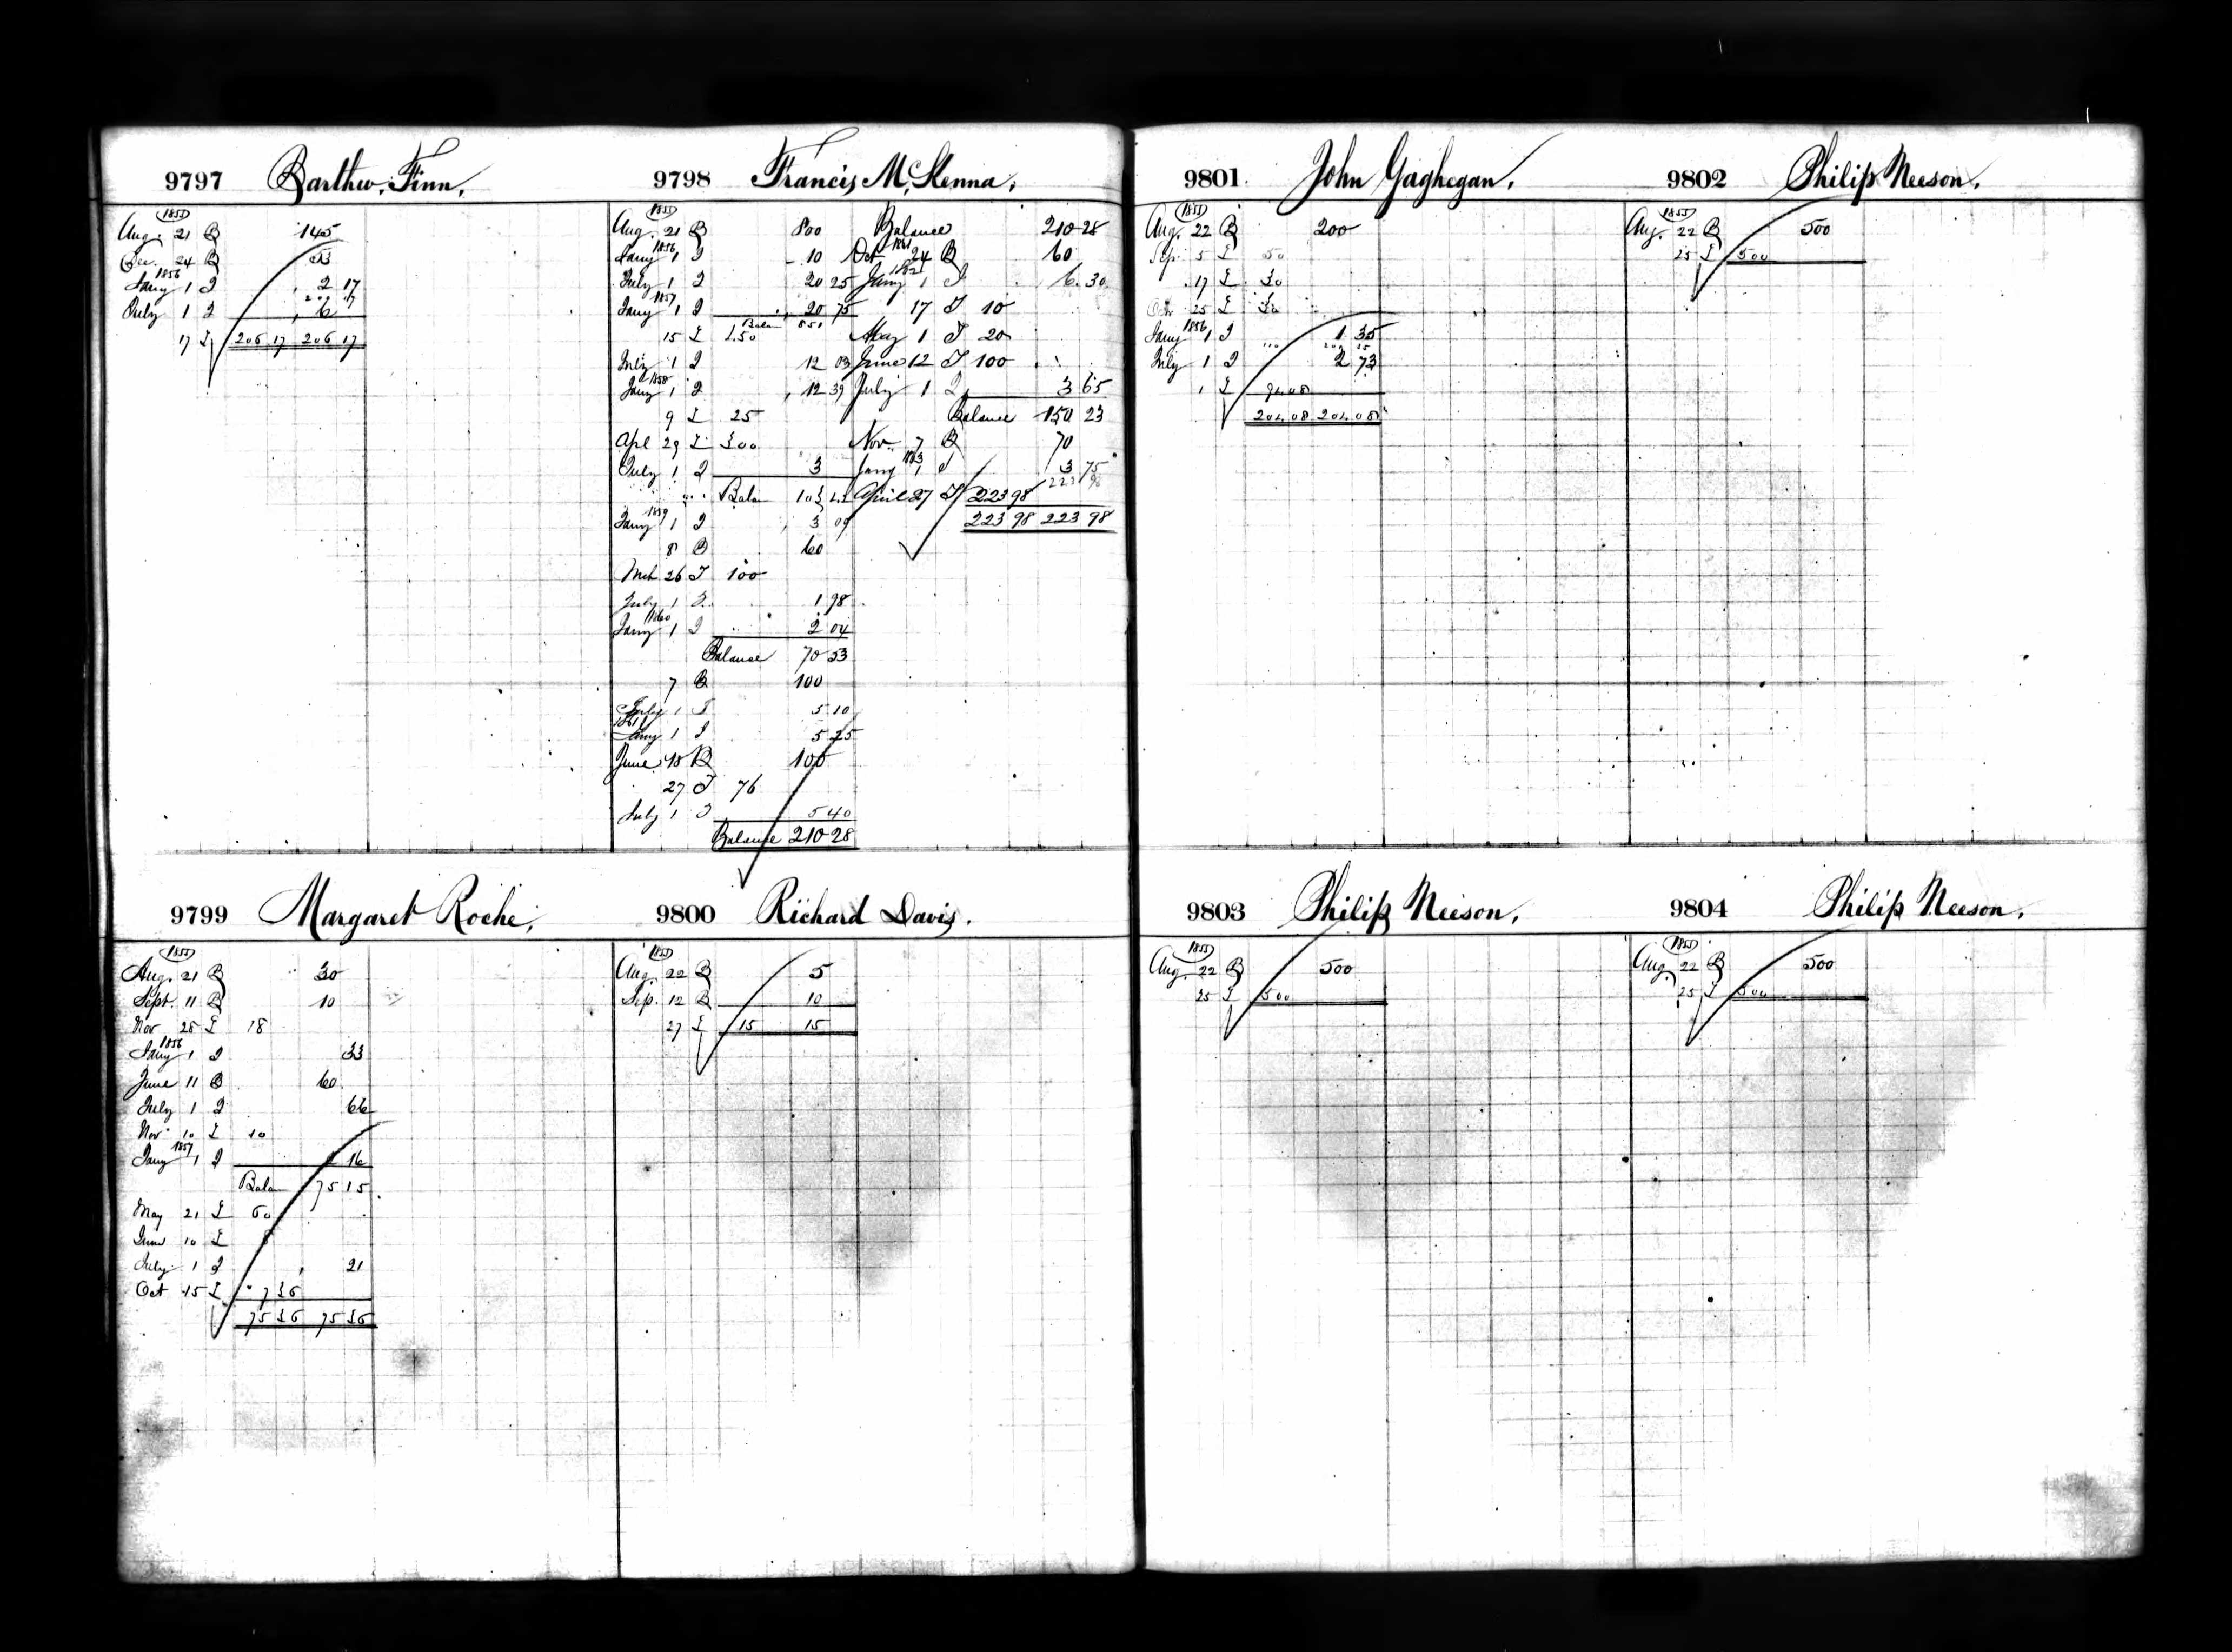 9797 Barthw. Finn,
1855
Aug. 21 B 145
Dec. 24 B 53
1856
Jany 1 I 2 17
July 1 I 6
17 L 206 17 206 17
9798 Francis McKenna,
1855
Aug. 21 B 800
1856
Jany 1 I 10
July 1 I 20 25
1857
Jany 1 I 20 75
Balan 851
15 L 450
July 1 I 12 03
1858
Jany 1 I 12 39
9 L 25
Apl 29 L 300
July 1 I 3
Balan 103 43
1859
Jany 1 I 3 09
8 B 60
Mch 26 T 100
July 1 I 1 98
1860
Jany 1 I 2 04
Balance 70 53
7 B 100
July 1 I 5 10
1861
Jany 1 I 5 25
June 18 B 100
27 T 76
July 1 I 5 40
Balance 210 28
Balance 210 28
1861
Oct 24 B 60
1862
Jany 1 I 6 30
17 T 10
May 1 T 20
June 12 T 100
July 1 I 3 65
Balance 150 23
Nov. 7 B 70
1863
Jany 1 I 3 75
223 98
April 27 T 223 98
223 98 223 98
9799 Margaret Roche,
1855
Aug. 21 B 30
Sept. 11 B 10
Nov 28 L 18
1856
Jany 1 I 33
June 11 B 60
July 1 I 66
Nov 10 L 10
1857
Jany 1 I 2 16
Balan 75 15
May 21 L 60
June 10 L 8
July 1 I 21
Oct 15 L 7 36
75 36 75 36
9800 Richard Davis.
1855
Aug. 22 B 5
Sep. 12 B 10
27 L 15 15
9801 John Gaghegan,
1855
Aug. 22 B 200
Sep. 5 L 50
17 L 30
Octr 25 L 30
1856
Jany 1 I 1 35
July 1 I 2 73
1 L 94.08
204.08 204.08
9802 Philip Neeson,
1855
Aug. 22 B 500
25 L 500
9803 Philip Neeson,
1855
Aug. 22 B 500
25 L 500
9804 Philip Neeson,
1855
Aug. 22 B 500
25 L 500